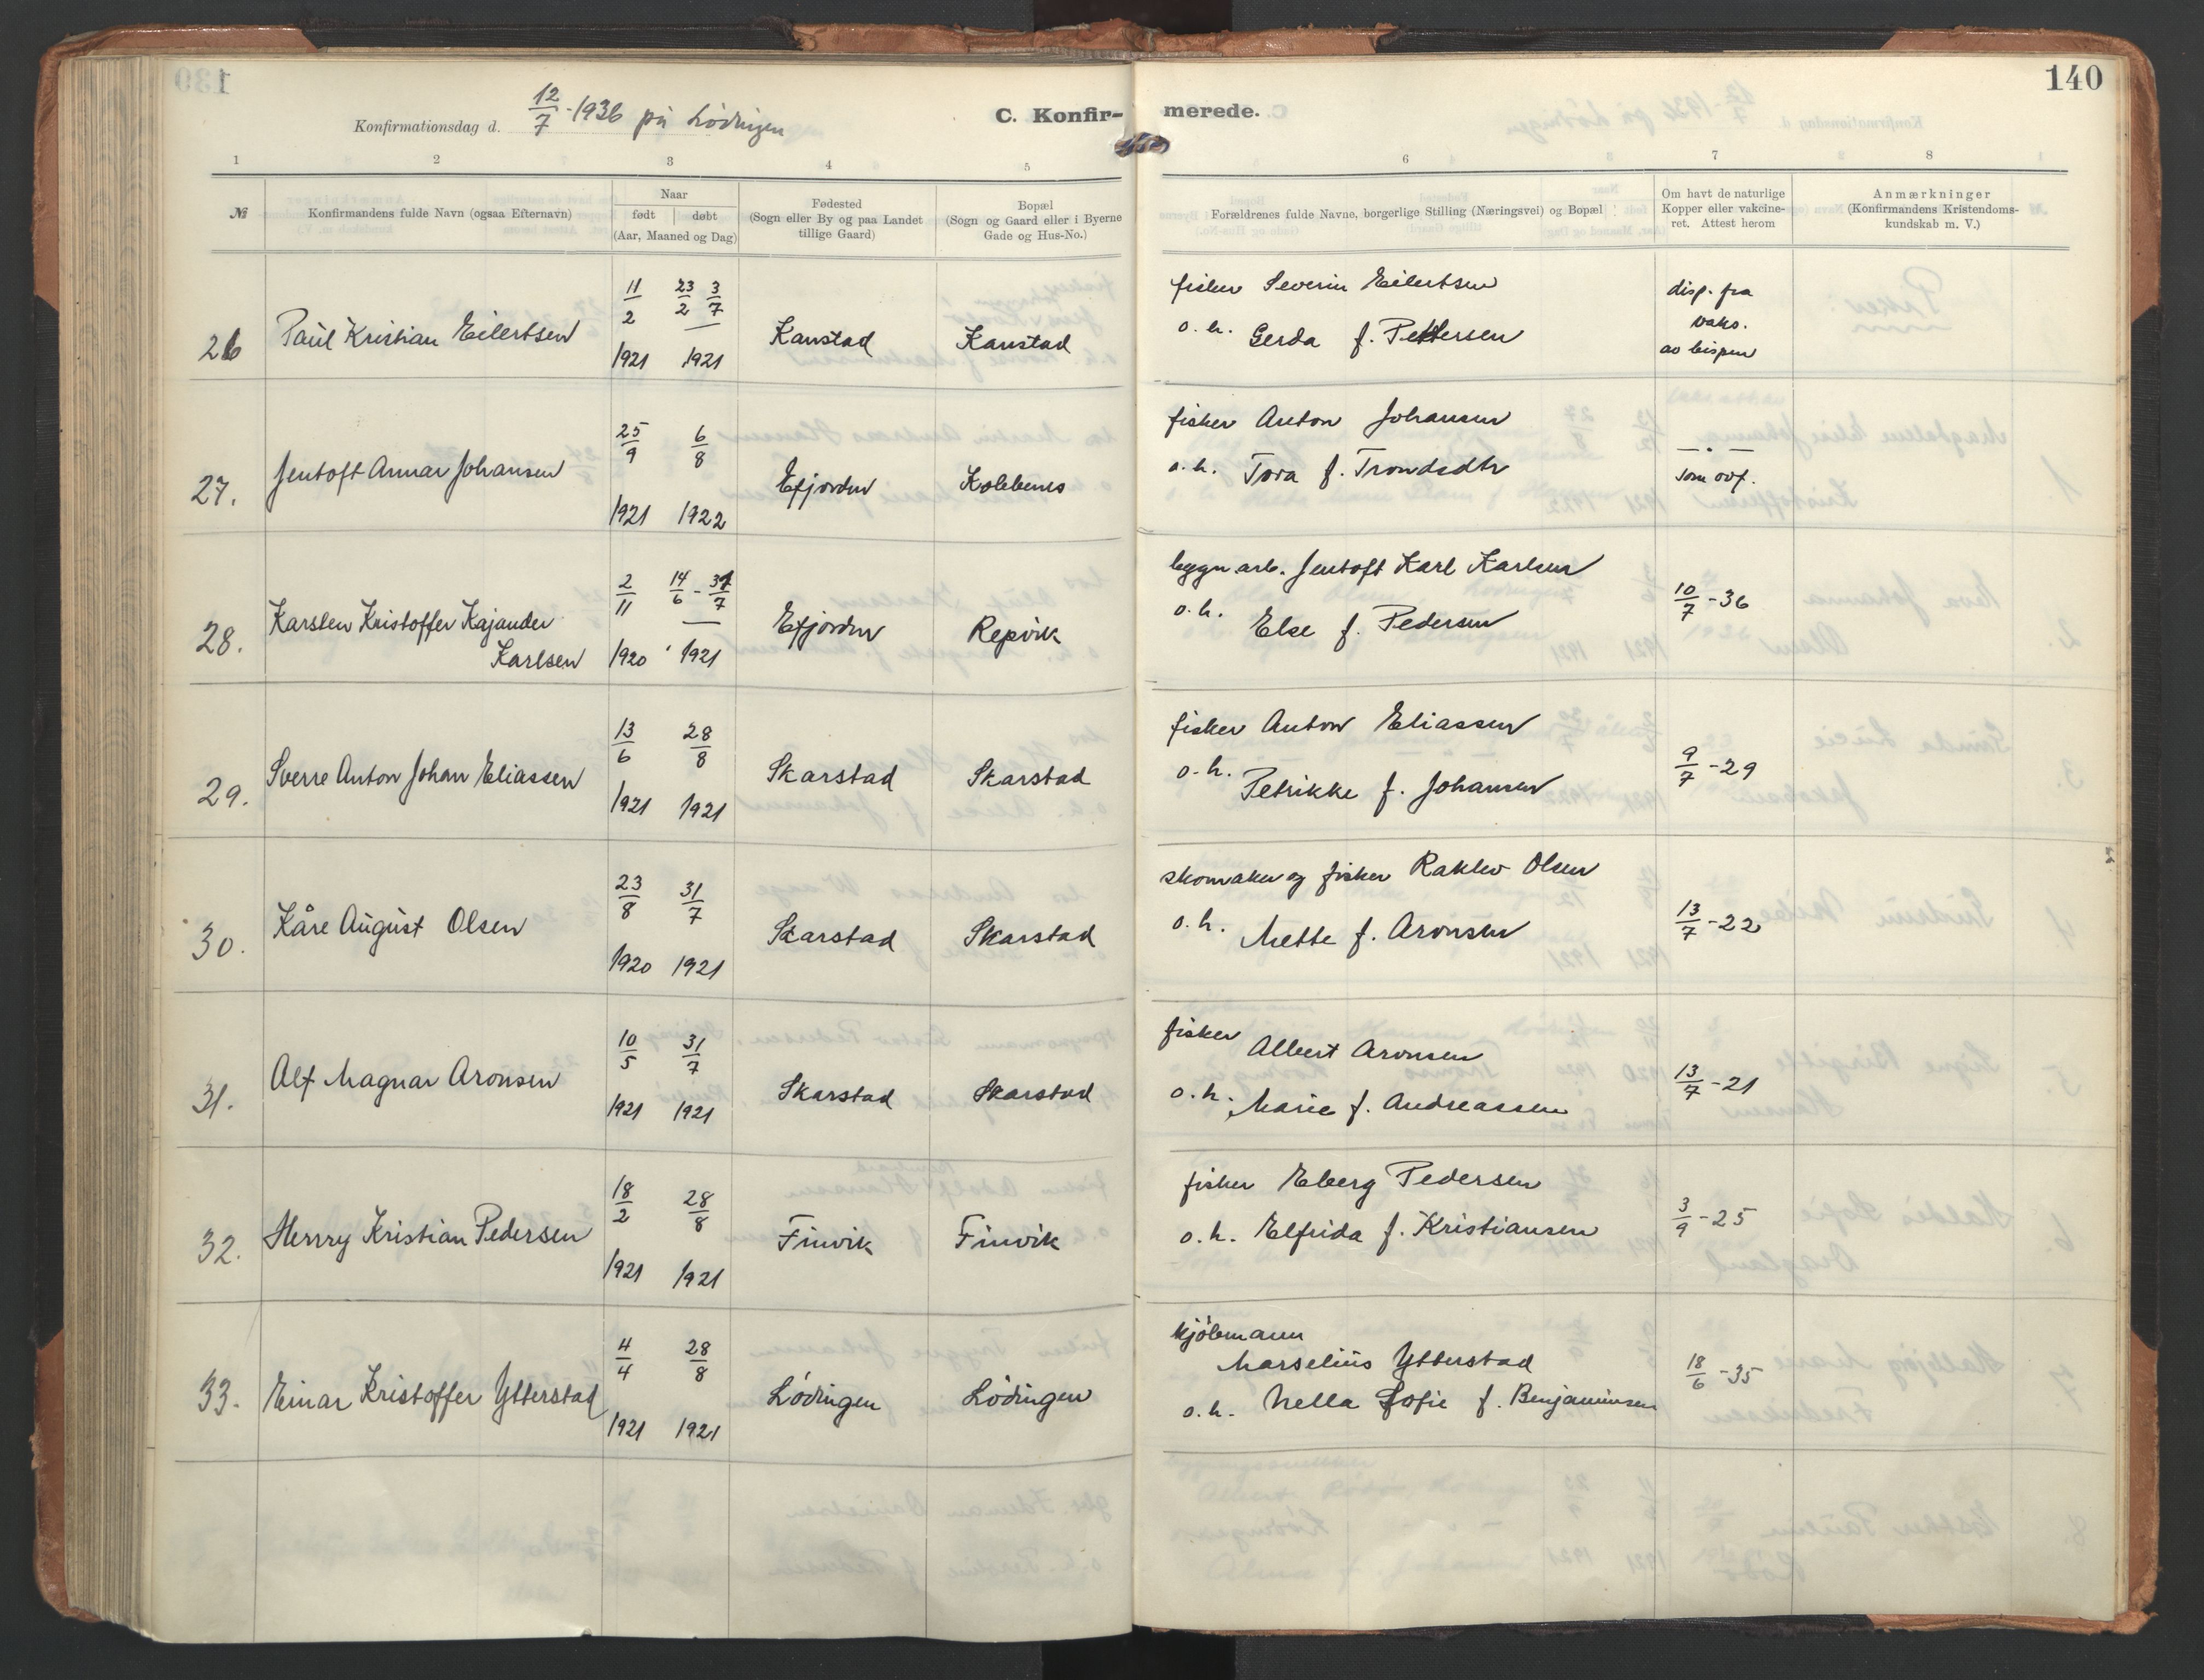 140
Konfirmationsdag d. 12/7 - 1936 på Lödingen
C. Konfir- merede.
1 2 3 4 5 6 7 8
№
Konfirmandens fulde Navn (ogsaa Efternavn)
Naar
født døbt
(Aar, Maaned og Dag)
Fødested
(Sogn eller By og paa Landet
tillige Gaard)
Bopæl
(Sogn og Gaard eller i Byerne
Gade og Hus-No.)
Forældrenes fulde Navne, borgerlige Stilling (Næringsvei) og Bopæl
Om havt de naturlige
Kopper eller vakcine-
ret. Attest herom
Anmærkninger
(Konfirmandens Kristendoms-
kundskab m. V.)
26 Paul Kristian Eilertsen 11/2 1921 23/2 3/7 1921 Kanstad Kanstad
fisker Severin Eilertsen
o. h. Gerda f. Pettersen
disp. fra
vaks.
av bispen
27. Jentoft Annar Johansen 25/9 1921 6/8 1922 Efjorden Kobbenes
fisker Anton Johansen
o. h. Tora f. Trondsdtr
— " —
som ovf.
28. Karsten Kristoffer Kajander
Karlsen 2/11 1920 14/6 - 31/7 1921 Efjorden Repvik
bygn. arb. Jentoft Karl Karlsen
o. h. Else f. Pedersen
10/7 - 36
29. Sverre Anton Johan Eliassen 13/6 1921 28/8 1921 Skarstad Skarstad
fisker Anton Eliassen
o. h. Petrikke f. Johansen
9/7 - 29
30. Kåre August Olsen 23/8 1920 31/7 1921 Skarstad Skarstad
skomaker og fisker Raklev Olsen
o. h. Mette f. Aronsen
13/7 - 22
31. Alf Magnar Aronsen 10/5 1921 31/7 1921 Skarstad Skarstad
fisker Albert Aronsen
o. h. Marie f. Andreassen
13/7 - 21
32. Henry Kristian Pedersen 18/2 1921 28/8 1921 Finvik Finvik
fisker Eberg Pedersen
o. h. Elfrida f. Kristiansen
3/9 - 25
33. Einar Kristoffer Ytterstad 4/4 1921 28/8 1921 Lödingen Lödingen
kjöbmann
Marselius Ytterstad
o. h. Nella Sofie f. Benjaminsen
18/6 - 35